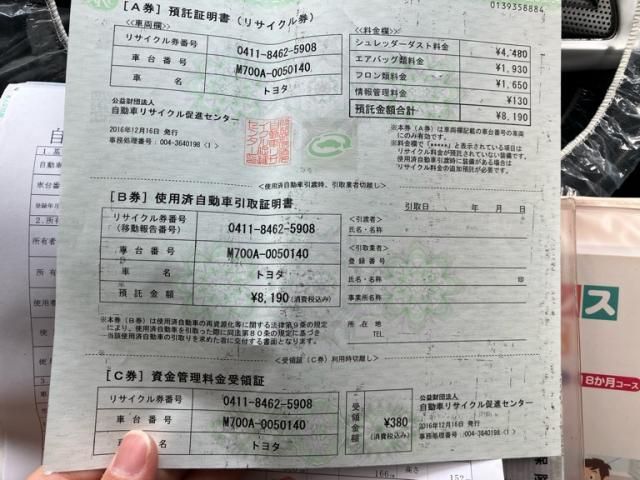 0139358884
[A券] 預託証明書(リサイクル券)
<車両欄>
リサイクル券番号 0411-8462-5908
車台番号 M700A-0050140
車名 トヨタ
<料金欄>
シュレッダーダスト料金 ¥4,480
エアバッグ類料金 ¥1,930
フロン類料金 ¥1,650
情報管理料金 ¥130
預託金額合計 ¥8,190
公益財団法人
自動車リサイクル促進センター
2016年12月16日 発行
事務処理番号:004-3640198〈1〉
※本券(A券)は車両欄記載の車台番号の車両
にのみ有効です。
※料金欄で「*****」と表示されている項目は
リサイクル料金が預託されていない装備です。
使用済自動車引渡時に装備がある場合は
リサイクル料金の追加預託が必要です。
<使用済自動車引渡時、引取業者切離し>
[B券] 使用済自動車引取証明書
引取日 年 月 日
リサイクル券番号
(移動報告番号) 0411-8462-5908
車台番号 M700A-0050140
車名 トヨタ
預託金額 ¥8,190(消費税込み)
<引渡者>
氏名・名称
<引取業者>
登録番号
氏名・名称 印
事業所名称
所在地
TEL
※本券(B券)は使用済自動車の再資源化等に関する法律第9条の規定
により、使用済自動車を引取った際に同法第80条の規定に基づき
当該使用済自動車の引取りを求めた者に交付する書面となります。
<受領証(C券)利用時切離し>
[C券] 資金管理料金受領証
リサイクル券番号 0411-8462-5908
車台番号 M700A-0050140
車名 トヨタ
受領金額 ¥380
(消費税込み)
公益財団法人
自動車リサイクル促進センター
2016年12月16日 発行
事務処理番号:004-3640198〈1〉
ス
18か月コース